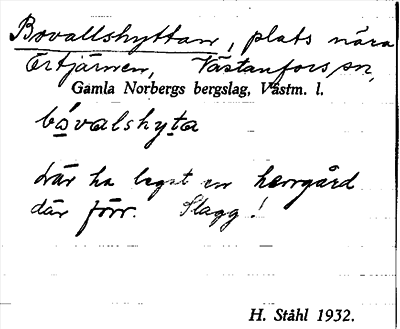 Bovallshyttan, plats nära
Ertjärnen, Västanfors sn,
Gamla Norbergs bergslag, Västm. l.
båvalshyta
där ha legat en herrgård
där förr. Slagg!
H. Ståhl 1932.